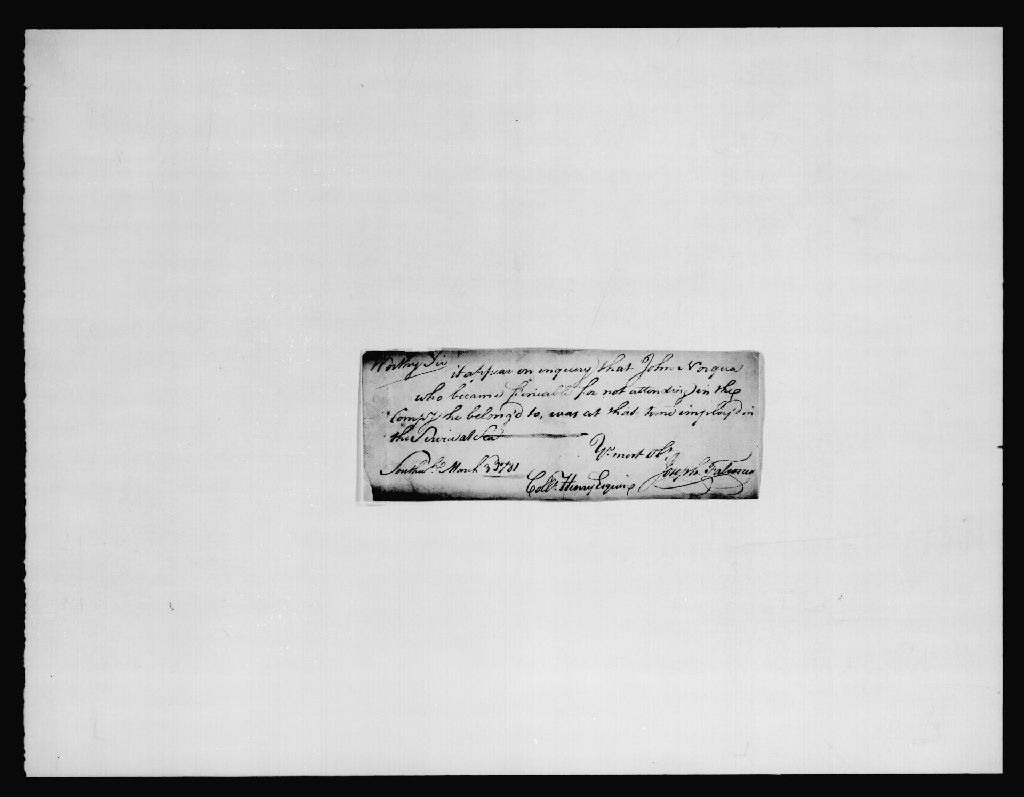 Worthy Sir
it appear on inquiry that John Norqua
who became fineable for not attending in the
Compy he belong'd to, was at that time imploy'd in
the Service at Sea
Yr most obt
Southwk March 3d 1781
Joseph
Collo. Henry Esquire